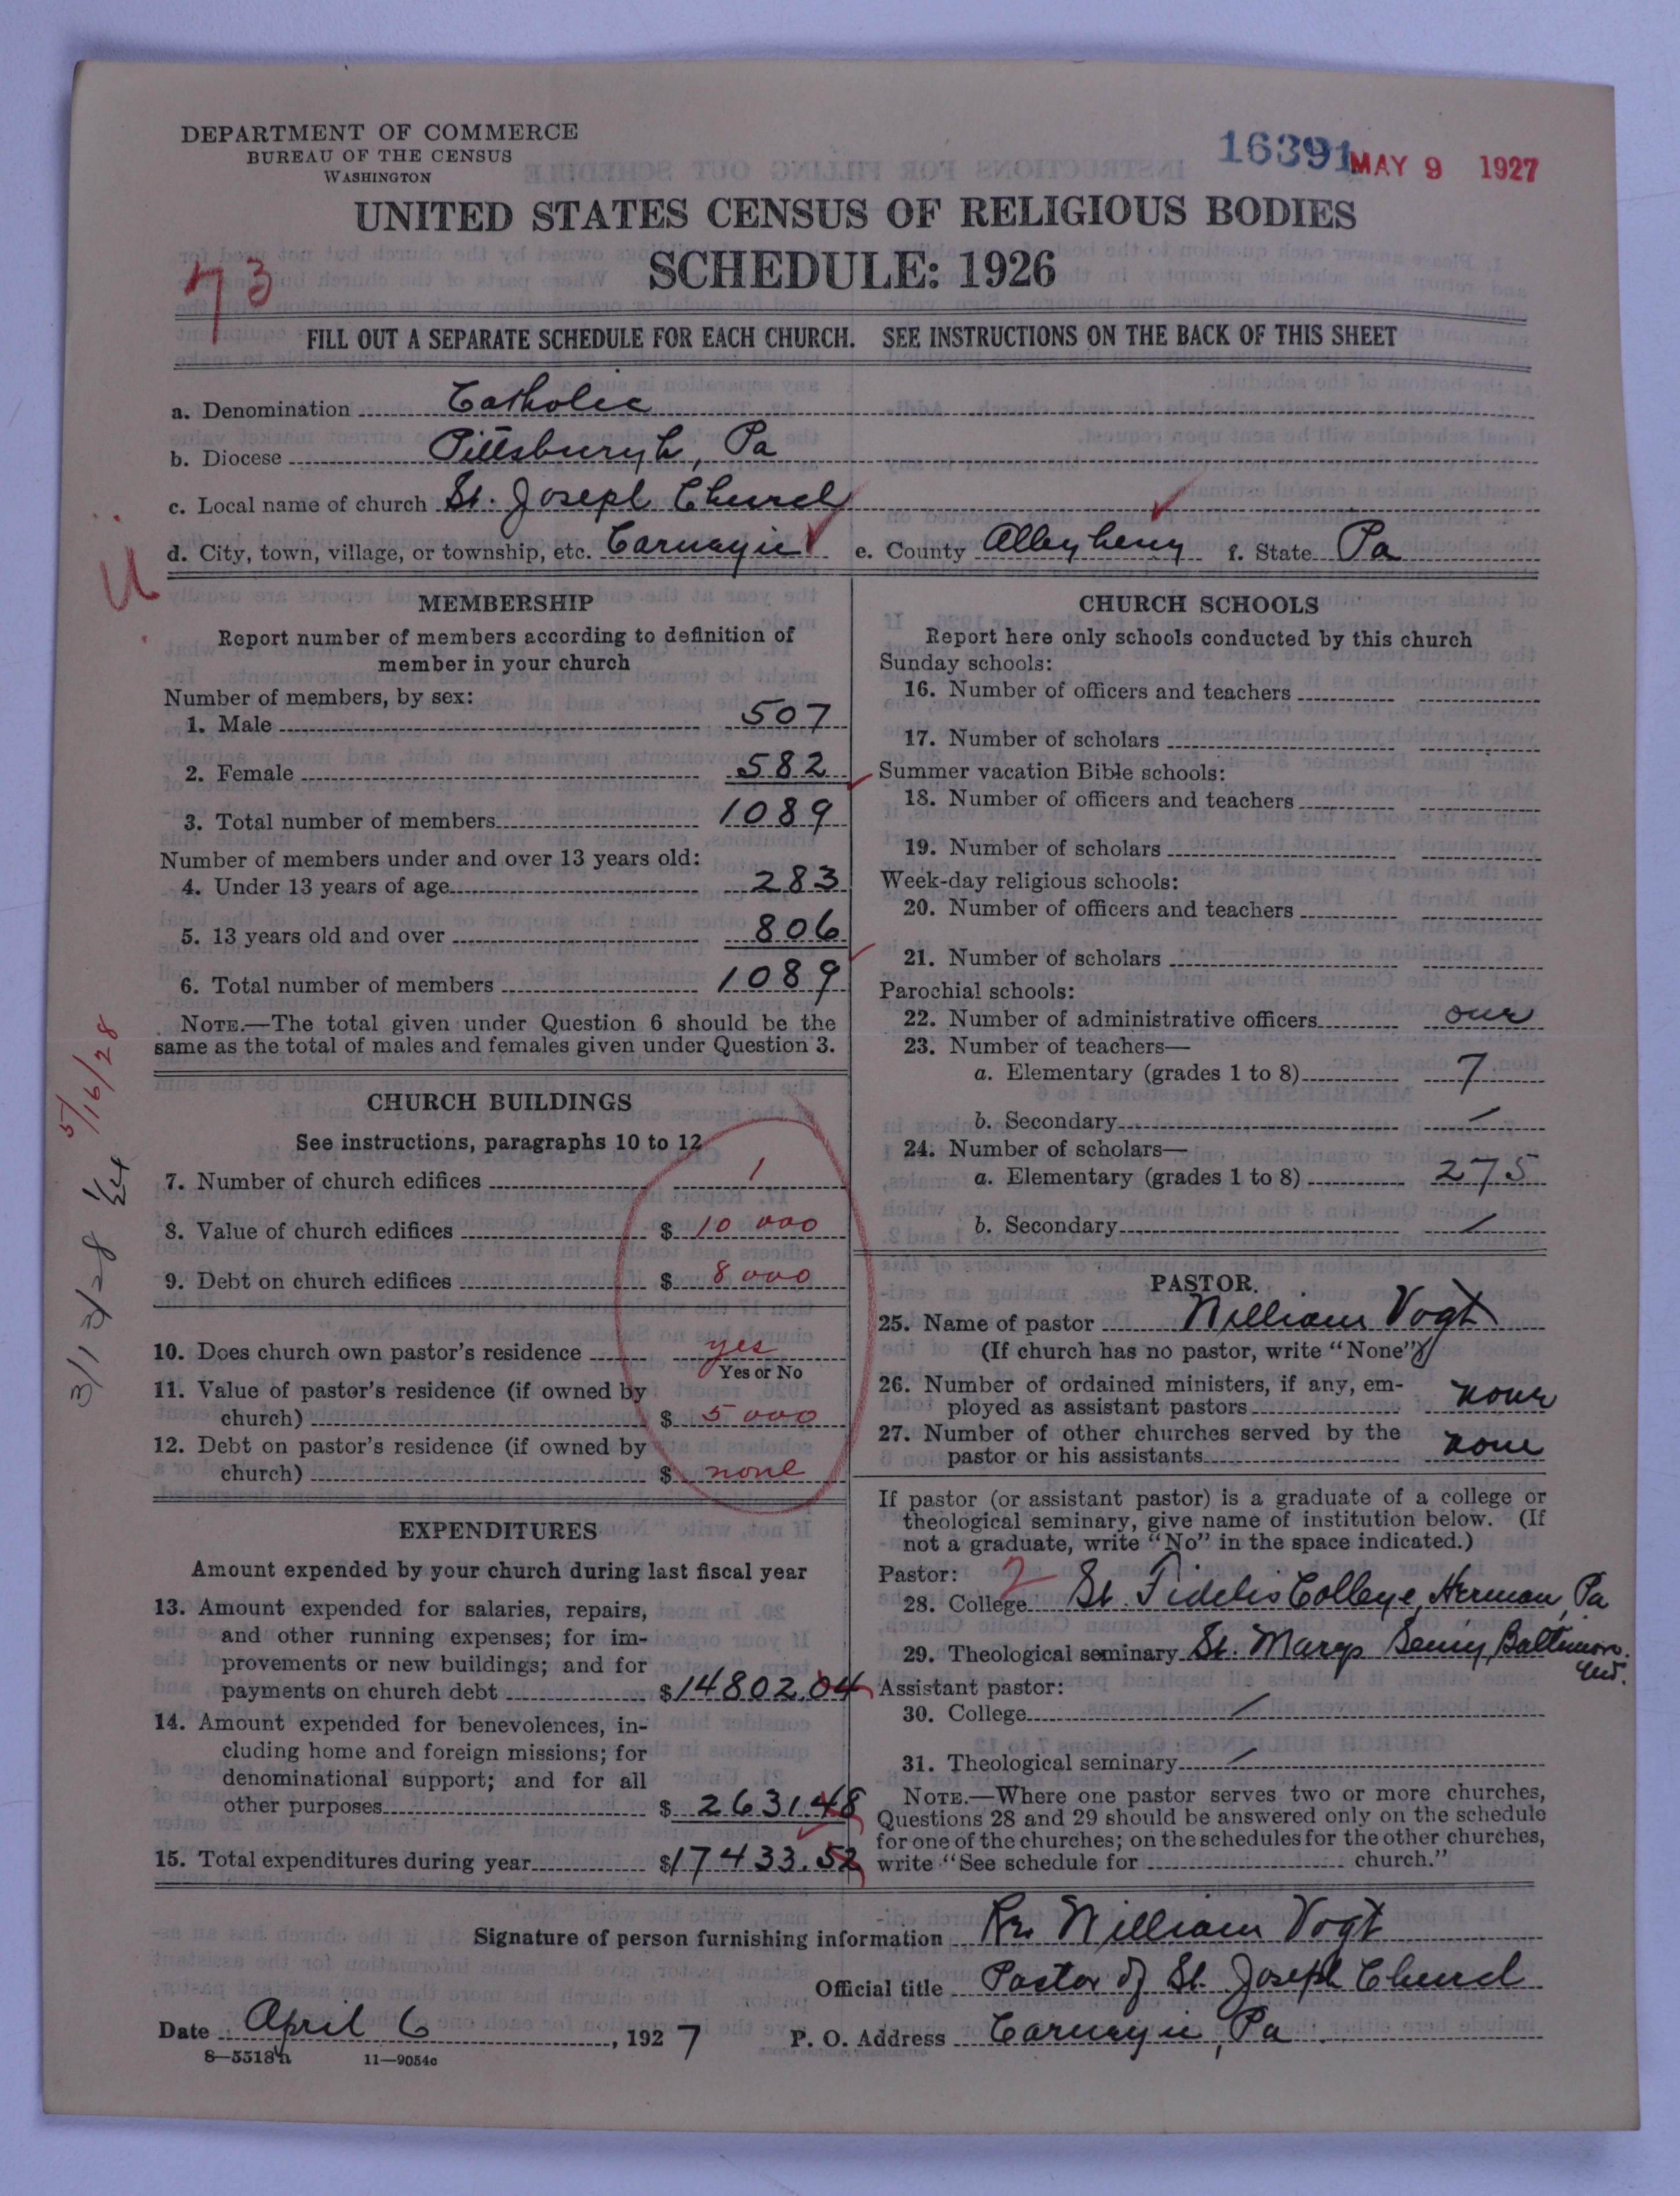 DEPARTMENT OF COMMERCE
BUREAU OF THE CENSUS
WASHINGTON
16391 MAY 9 1927
UNITED STATES CENSUS OF RELIGIOUS BODIES
SCHEDULE: 1926
73
FILL OUT A SEPARATE SCHEDULE FOR EACH CHURCH. SEE INSTRUCTIONS ON THE BACK OF THIS SHEET
a. Denomination Catholic
b. Diocese Pittsburgh, Pa
c. Local name of church St. Joseph Church
d. City, town, village, or township, etc. Carnegie e. County Allegheny f. State Pa
MEMBERSHIP
Report number of members according to definition of
member in your church
Number of members, by sex:
1. Male 507
2. Female 582
3. Total number of members 1089
Number of members under and over 13 years old:
4. Under 13 years of age 283
5. 13 years old and over 806
6. Total number of members 1089
NOTE.—The total given under Question 6 should be the
same as the total of males and females given under Question 3.
5/16/28
3/12/28
CHURCH BUILDINGS
See instructions, paragraphs 10 to 12
7. Number of church edifices 1
8. Value of church edifices $ 10 000
9. Debt on church edifices $ 8 000
10. Does church own pastor's residence yes
Yes or No
11. Value of pastor's residence (if owned by
church) $ 5 000
12. Debt on pastor's residence (if owned by
church) $ none
EXPENDITURES
Amount expended by your church during last fiscal year
13. Amount expended for salaries, repairs,
and other running expenses; for im-
provements or new buildings; and for
payments on church debt $14802.04
14. Amount expended for benevolences, in-
cluding home and foreign missions; for
denominational support; and for all
other purposes $ 2631.48
15. Total expenditures during year $17433.52
CHURCH SCHOOLS
Report here only schools conducted by this church
Sunday schools:
16. Number of officers and teachers
17. Number of scholars
Summer vacation Bible schools:
18. Number of officers and teachers
19. Number of scholars
Week-day religious schools:
20. Number of officers and teachers
21. Number of scholars
Parochial schools:
22. Number of administrative officers one
23. Number of teachers—
a. Elementary (grades 1 to 8) 7
b. Secondary /
24. Number of scholars—
a. Elementary (grades 1 to 8) 275
b. Secondary /
PASTOR.
25. Name of pastor William Vogt
(If church has no pastor, write "None")
26. Number of ordained ministers, if any, em-
ployed as assistant pastors none
27. Number of other churches served by the
pastor or his assistants none
If pastor (or assistant pastor) is a graduate of a college or
theological seminary, give name of institution below. (If
not a graduate, write "No" in the space indicated.)
Pastor: 2
28. College St. Fidelis College, Herman, Pa
29. Theological seminary St. Marys Seminy, Baltimore.
Md.
Assistant pastor:
30. College /
31. Theological seminary /
NOTE.—Where one pastor serves two or more churches,
Questions 28 and 29 should be answered only on the schedule
for one of the churches; on the schedules for the other churches,
write "See schedule for church."
Signature of person furnishing information Rev William Vogt
Official title Pastor of St. Joseph Church
Date April 6, 1927 P. O. Address Carnegie, Pa
8—5518a 11—9054c